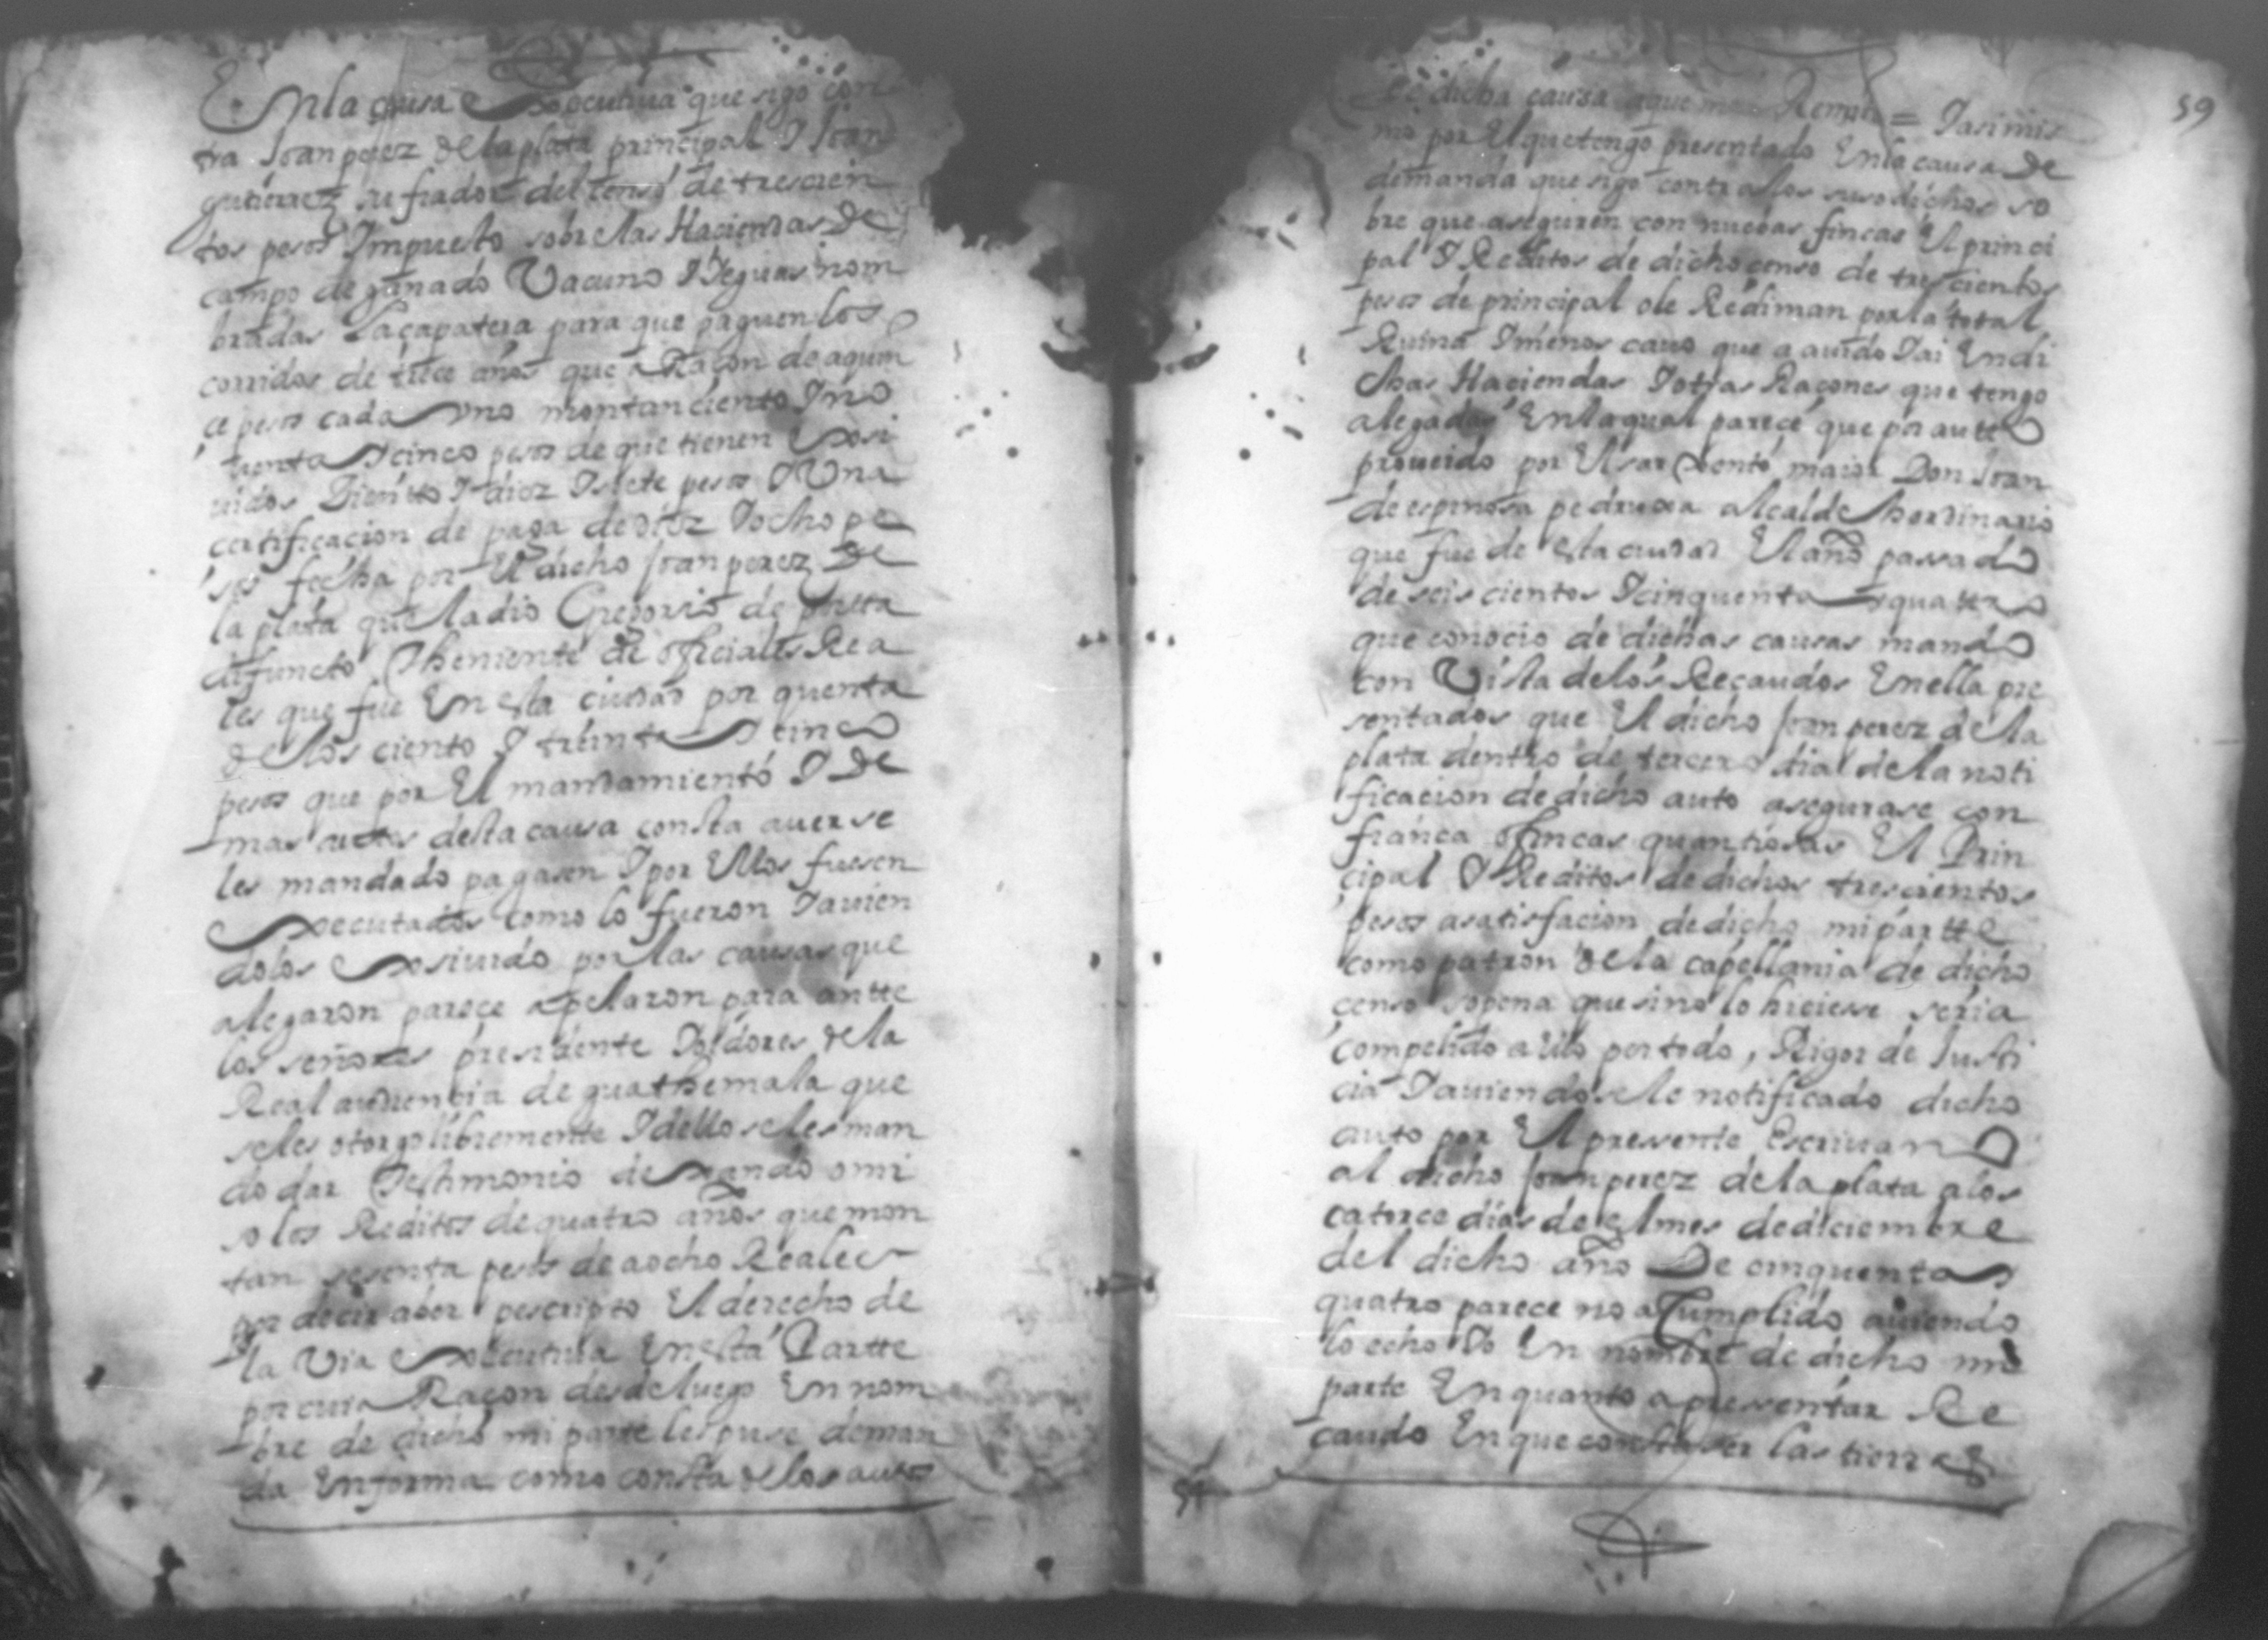 En la causa Executiua que sigo con
tra Joan perez de la plata principal I Joan
gutierrez su fiador del censo de trescien
tos pesos Impuesto sobre las Haciendas de
campo de ganado Vacuno I Yeguas nom
bradas La çapatera para que paguen los
corridos de trece años que a Raçon de a quin
ce pesos cada uno montan ciento I no
uenta I cinco pesos de que tienen Exsi
uidos Ciento I diez I siete pesos I Una
certificacion de paga de diez I ocho pe
sos fecha por El dicho Joan perez de
la plata que la dio Gregorio de
difuncto Theniente de oficiales Rea
les que fue En esta ciudad por quenta
de los ciento I treinta I cinco
pesos que por El mandamiento I de
mas autos desta causa consta auerse
les mandado pagasen I por Ellos fuesen
Executados como lo fueron I auien
dolos Exsiuido por las causas que
alegaron parece apelaron para antte
los señores presidente I oidores de la
Real audiencia de guathemala que
se les otorgo libremente I dello se les man
do dar Testimonio de mando omi
so los Reditos de quatro años que mon
tan sesenta pesos de a ocho Reales
por decir aber pescripto El derecho de
la Via Executiua En esta Partte
por cuia Raçon desde luego En nom
bre de dicho mi parte les puse deman
da En forma como consta de los autos
59
de dicha causa a que me Remito = I asimis
mo por El que tengo presentado En la causa de
demanda que sigo contra los susodichos so
bre que aseguren con nuebas fincas El princi
pal I Reditos de dicho censo de trescientos
pesos de principal o le Rediman por la total
Ruina I menos cauo que a auido I ai En di
chas Haciendas I otras Raçones que tengo
alegadas En la qual parece que por autto
proueido por El sarxento maior Don Joan
de espinosa pedruxa alcalde hordinario
que fue de esta ciudad El año passado
de seiscientos I cinquenta I quattro
que conocio de dichas causas mando
con Vista de los Recaudos En ella pre
sentados que El dicho Joan perez de la
plata dentro de tercero dia de la noti
ficacion de dicho auto asegurase con
fiança o fincas quantiosas El Prin
cipal I Reditos de dichos trescientos
pesos a satisfacion de dicho mi partte
como patron de la capellania de dicho
censo so pena que si no lo hiciesse seria
compelido a Ello por todo Rigor de Justi
cia I auiendosele notificado dicho
auto por El pressente Escriuano
al dicho Joan perez de la plata a los
catorce dias de el mes de diciembre
del dicho año De cinquenta I
quatro parece no a Cumplido auiendo
lo echo Io En nombre de dicho mi
parte En quanto a pressentar Re
caudo En que consta ser las tierras